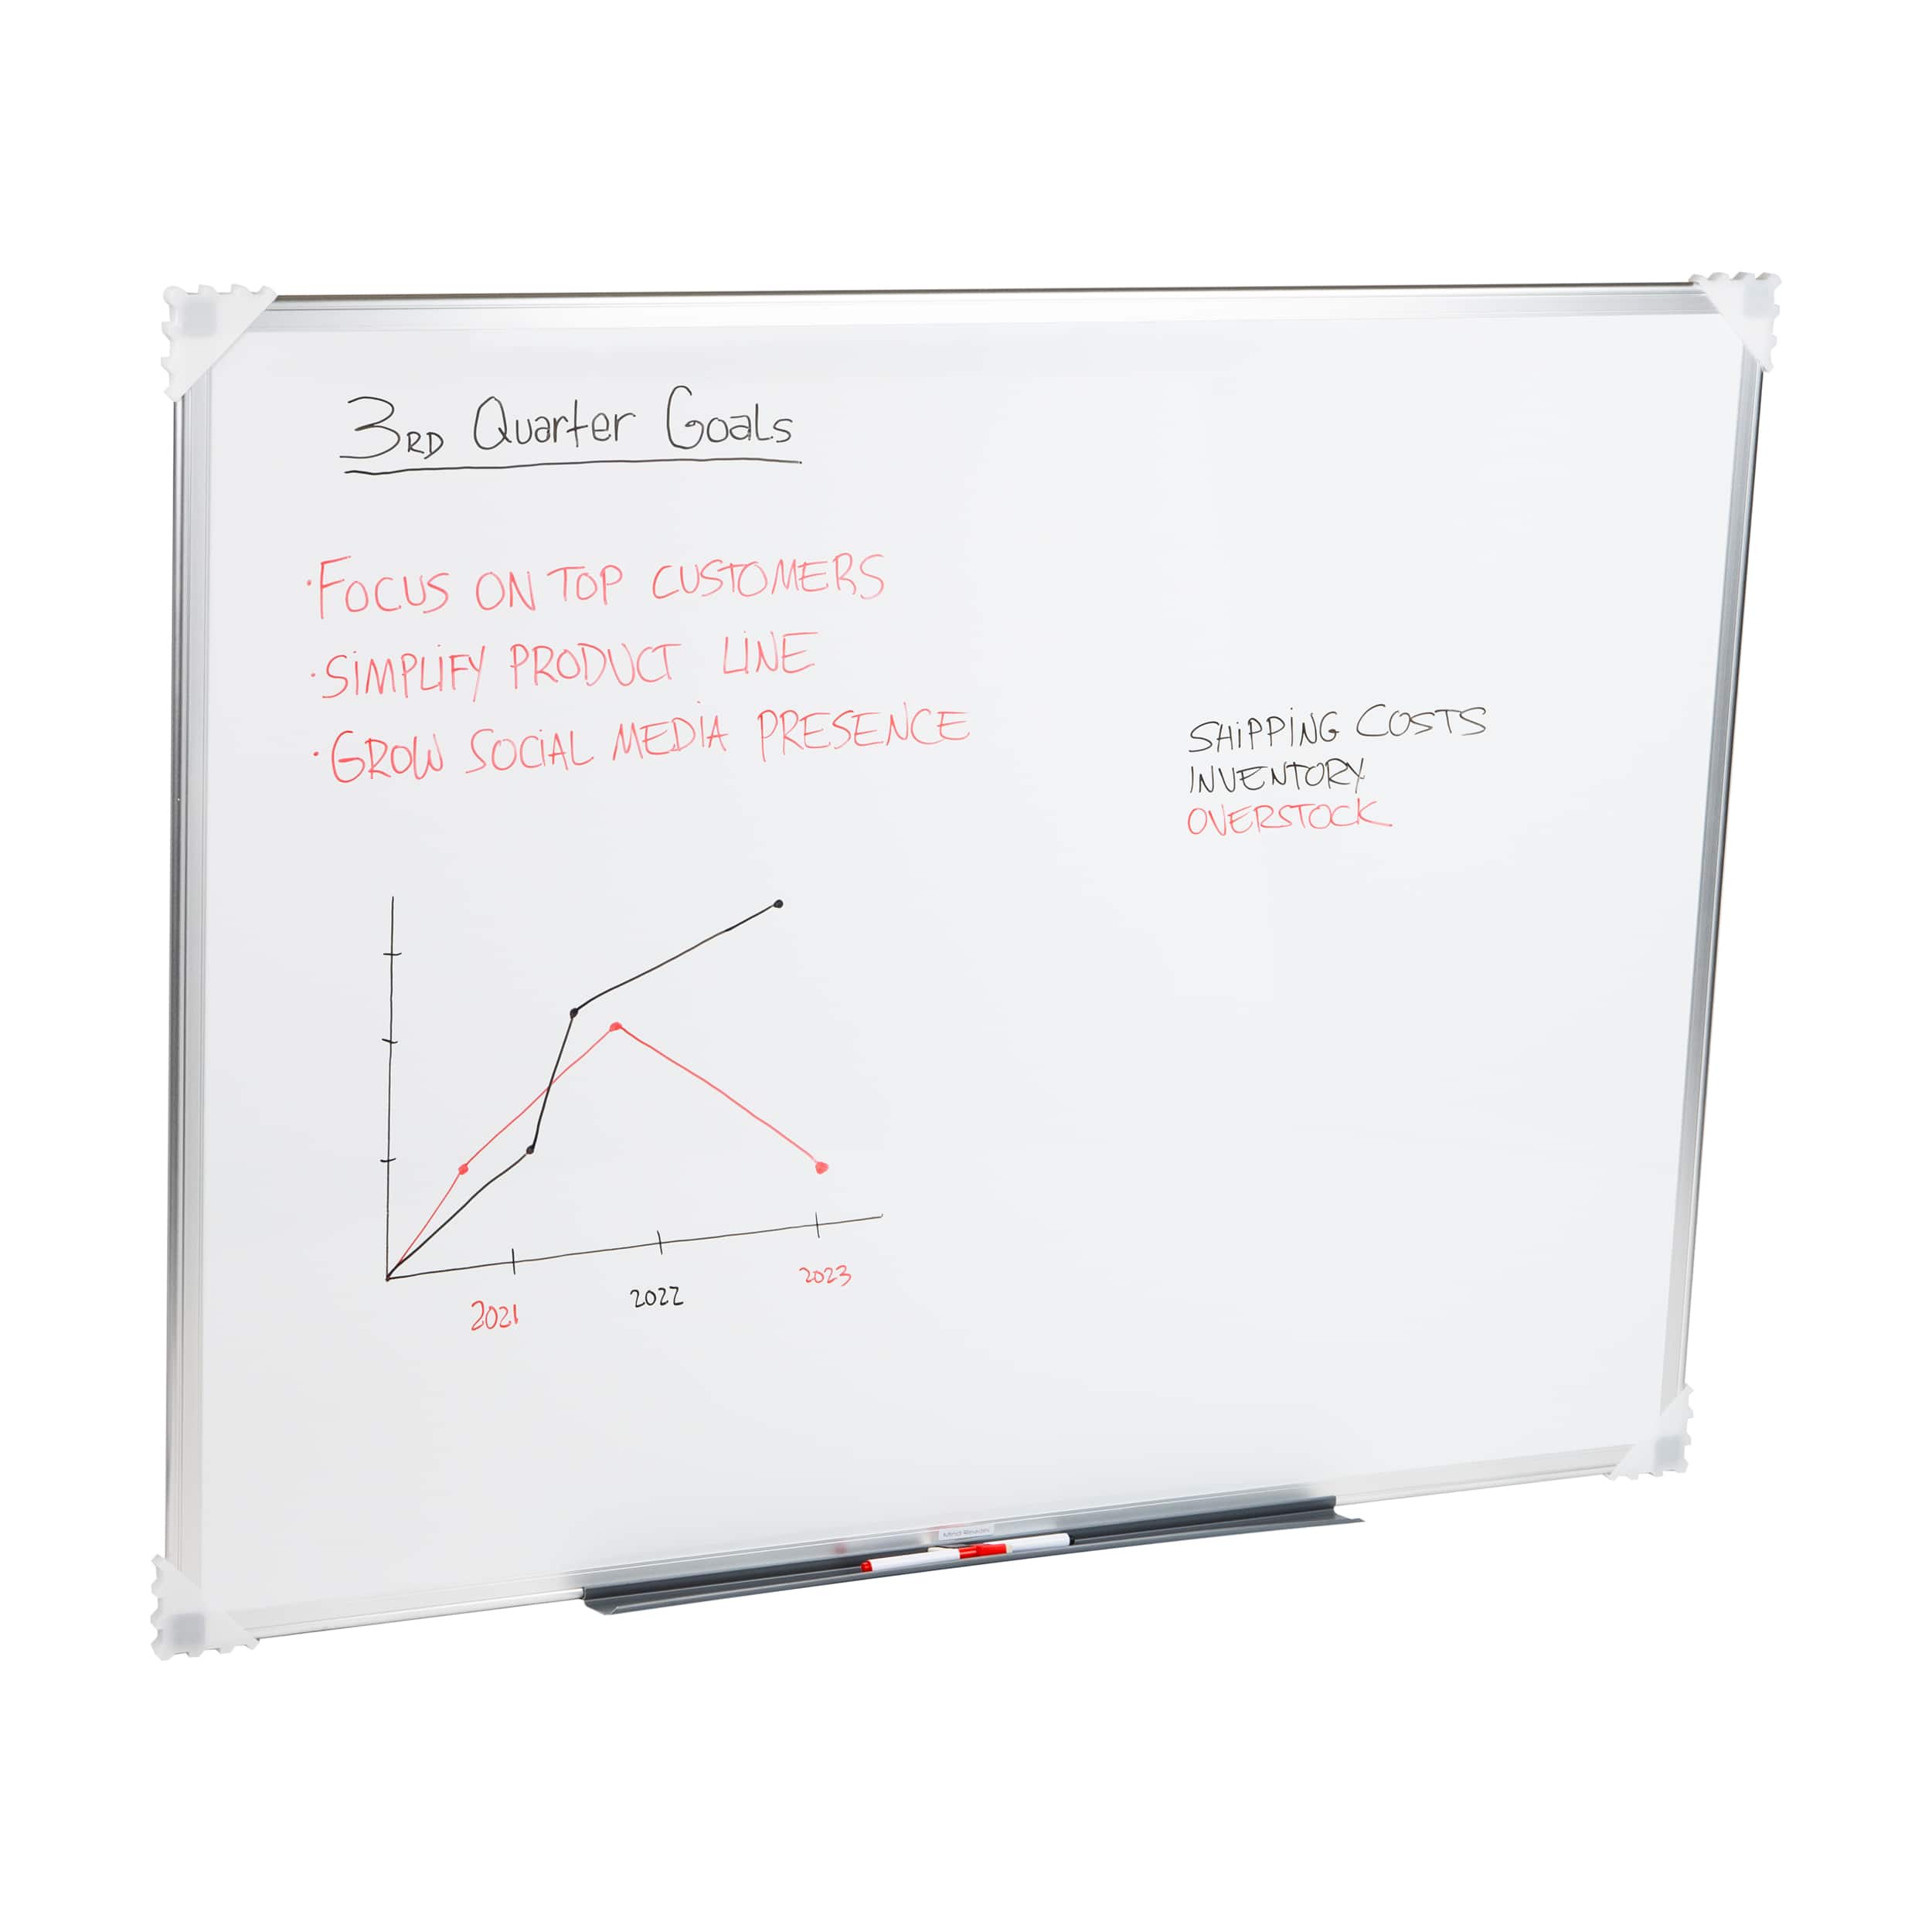 3RD Quarter Goals
·FOCUS ON TOP CUSTOMERS
·SiMPLiFY PRODUCT LiNE
·GROW SOCiAL MEDiA PRESENCE
SHiPPiNG COSTS
INVENTORY
OVERSTOCK
2021 2022 2023